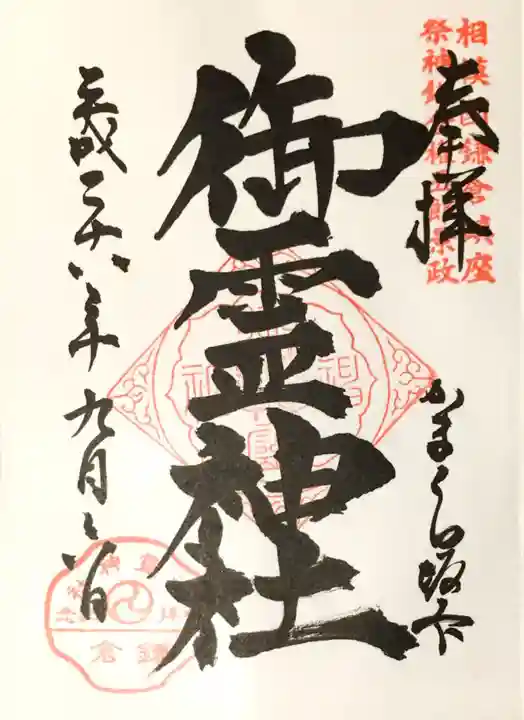 奉拝
相模国鎌倉鎮座
祭神鎌倉権五郎景政
かまくら坂下
御霊神社
平成二十八年九月六日
鎌倉